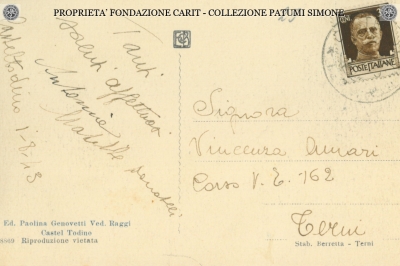 PROPRIETA' FONDAZIONE CARIT - COLLEZIONE PATUMI SIMONE
Tanti
saluti affettuosi
Antonina
Casteltodino 1-8-43
POSTE ITALIANE
Signora
Vincenza Amari
Corso V. E. 162
Terni
Ed. Paolina Genovetti Ved. Raggi
Castel Todino
Riproduzione vietata
Stab. Berretta - Terni